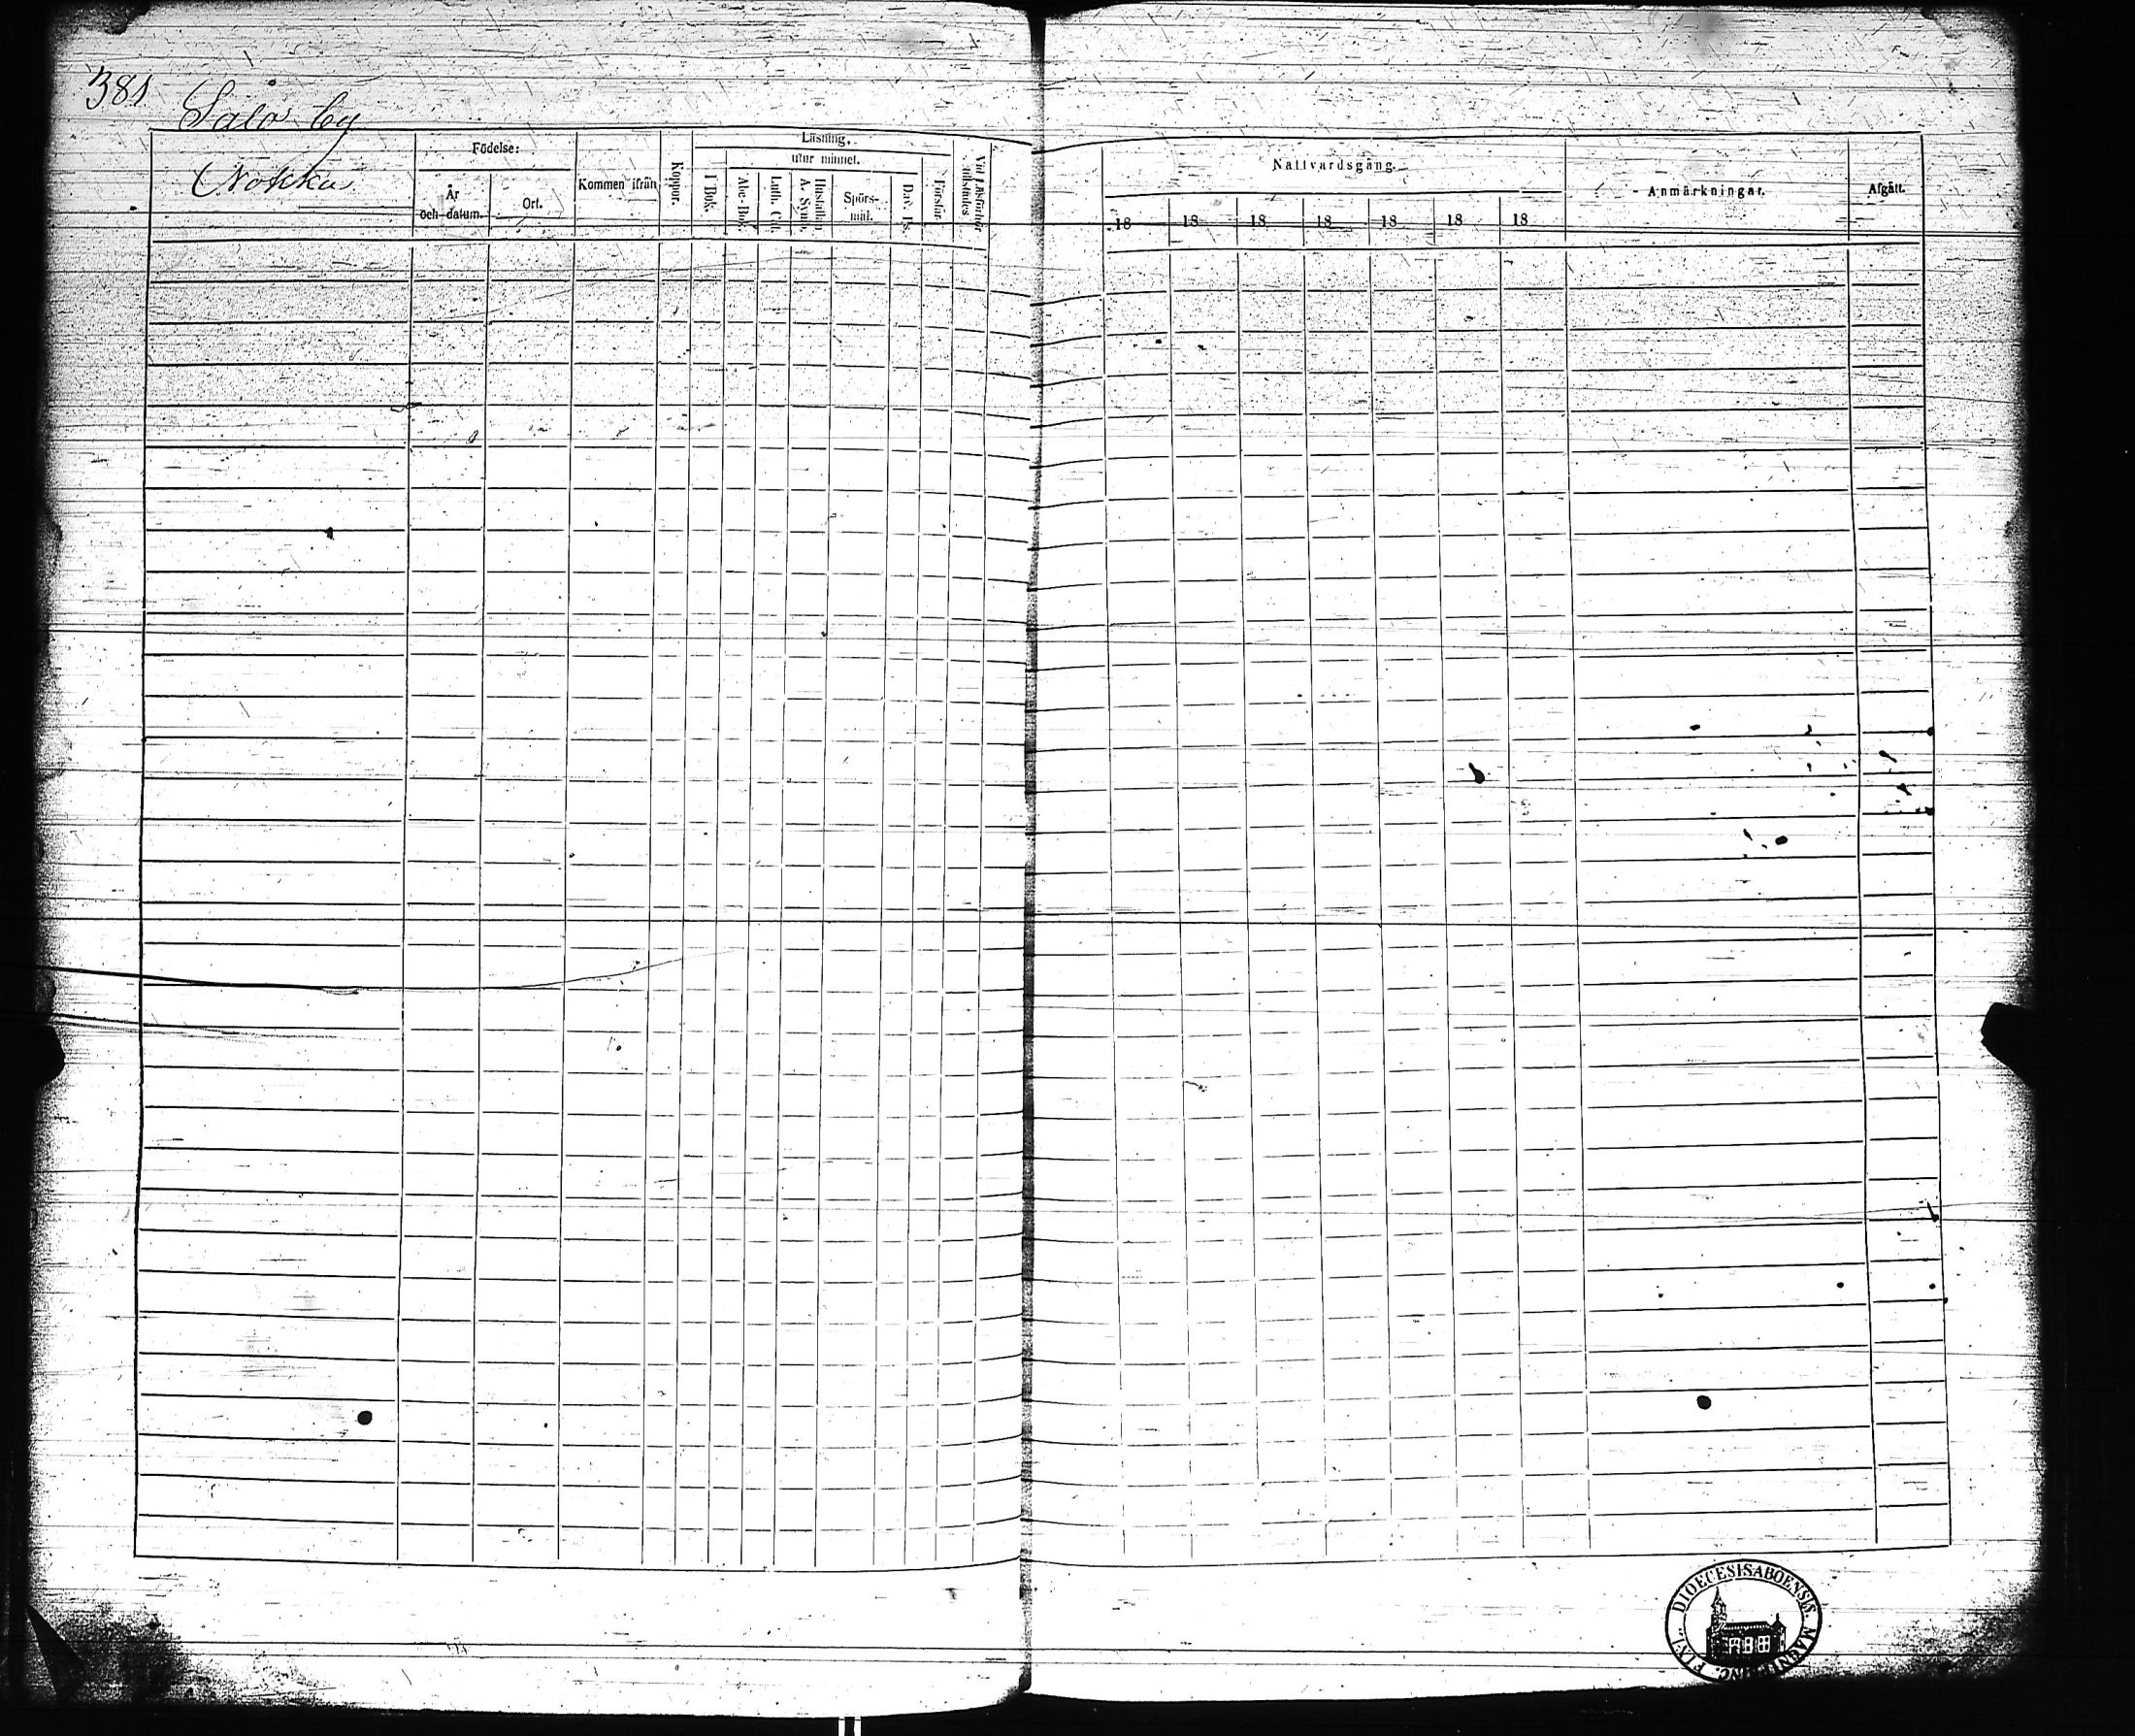 381
Salo by
Nokka
Födelse:
År och datum.
Ort.
Kommen ifrån
Koppor.
Läsning.
utur minnet.
I Bok.
Abc-Bok.
Luth. Cat.
Hustafla, A. Symb.
Spörs-mål.
Dav. Ps.
Förstår.
Vid Läsförhör
Nattvardsgång.
18 18 18 18 18 18 18
Anmärkningar.
Afgått.
DIOECESIS ABOENSIS. MAGNI DUC. FINL.